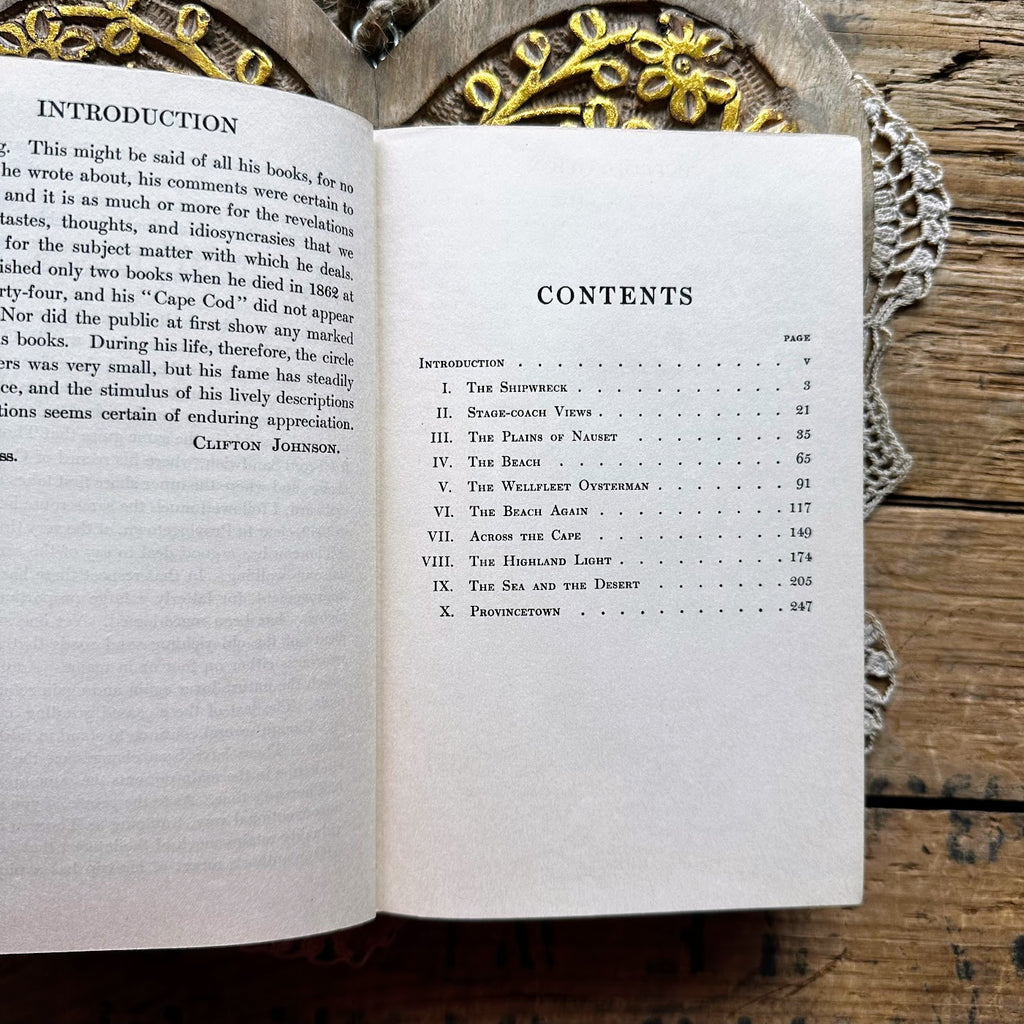 INTRODUCTION
g. This might be said of all his books, for no
he wrote about, his comments were certain to
and it is as much or more for the revelations
tastes, thoughts, and idiosyncrasies that we
for the subject matter with which he deals.
ished only two books when he died in 1862 at
rty-four, and his "Cape Cod" did not appear
Nor did the public at first show any marked
s books. During his life, therefore, the circle
ers was very small, but his fame has steadily
ce, and the stimulus of his lively descriptions
tions seems certain of enduring appreciation.
CLIFTON JOHNSON.
ss.
CONTENTS
PAGE
INTRODUCTION . . . . . . . . . . . . . . v
I. THE SHIPWRECK . . . . . . . . . . . 3
II. STAGE-COACH VIEWS . . . . . . . . . . 21
III. THE PLAINS OF NAUSET . . . . . . . . 35
IV. THE BEACH . . . . . . . . . . . . 65
V. THE WELLFLEET OYSTERMAN . . . . . . . 91
VI. THE BEACH AGAIN . . . . . . . . . . 117
VII. ACROSS THE CAPE . . . . . . . . . . 149
VIII. THE HIGHLAND LIGHT . . . . . . . . . 174
IX. THE SEA AND THE DESERT . . . . . . . 205
X. PROVINCETOWN . . . . . . . . . . . 247